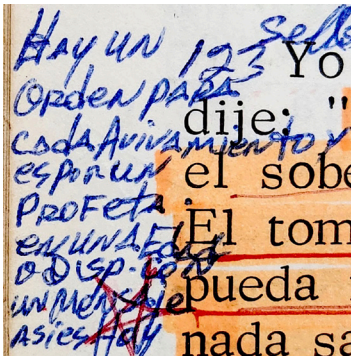 Sello
HAY UN 123
Orden para
cada Avivamiento y
es por un
Profeta.
en una Edad
o Disp.
un Mensaje
asi es Hoy
Yo
dije: "
el sobe
El tom
pueda
nada sa